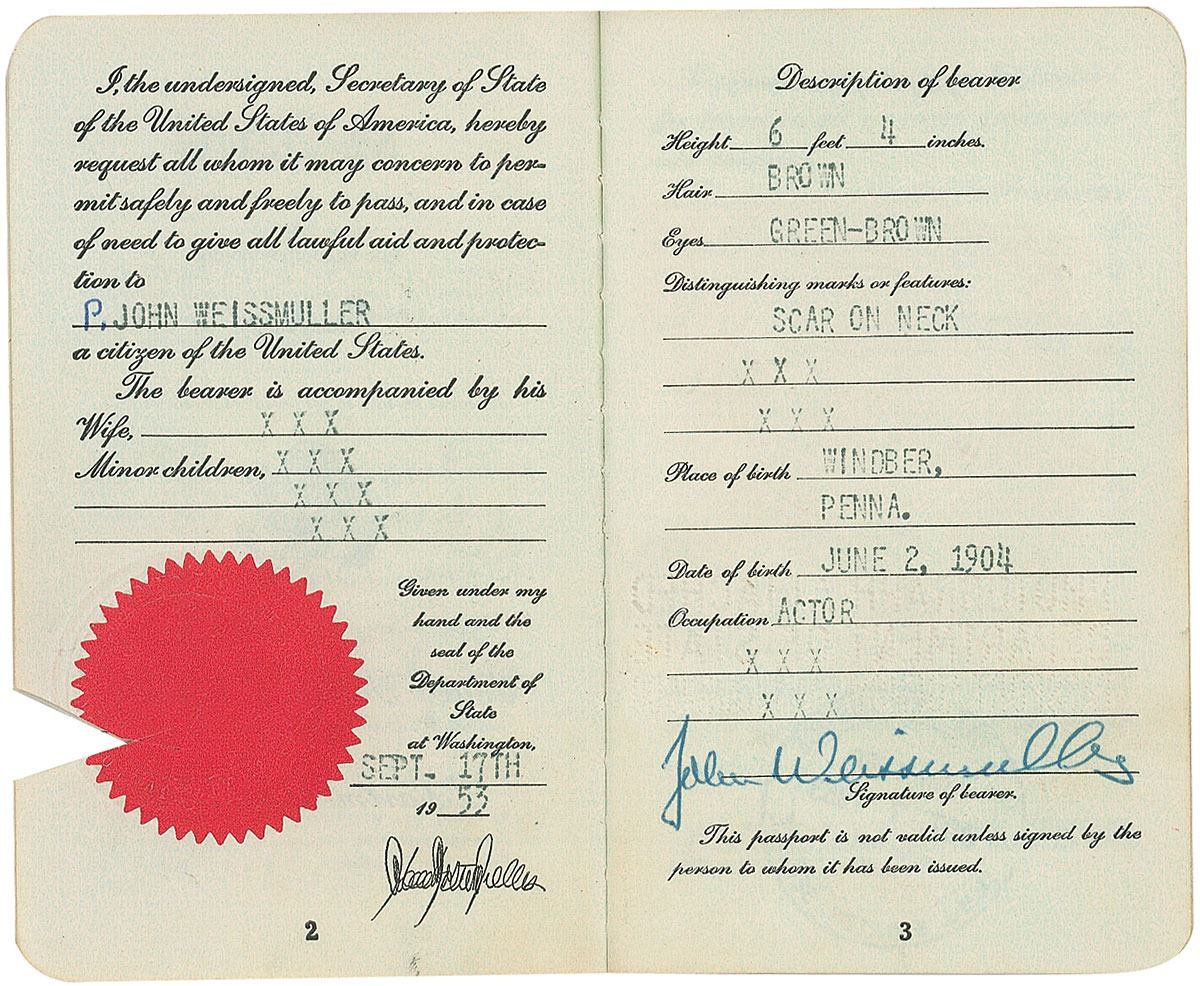 I, the undersigned, Secretary of State
of the United States of America, hereby
request all whom it may concern to per-
mit safely and freely to pass, and in case
of need to give all lawful aid and protec-
tion to
P. JOHN WEISSMULLER
a citizen of the United States.
The bearer is accompanied by his
Wife, X X X
Minor children, X X X
X X X
X X X
Given under my
hand and the
seal of the
Department of
State
at Washington,
SEPT. 17TH
19 53
2
Description of bearer
Height 6 feet 4 inches.
Hair BROWN
Eyes GREEN-BROWN
Distinguishing marks or features:
SCAR ON NECK
X X X
X X X
Place of birth WINDBER,
PENNA.
Date of birth JUNE 2, 1904
Occupation ACTOR
X X X
X X X
John Weissmuller
Signature of bearer.
This passport is not valid unless signed by the
person to whom it has been issued.
3